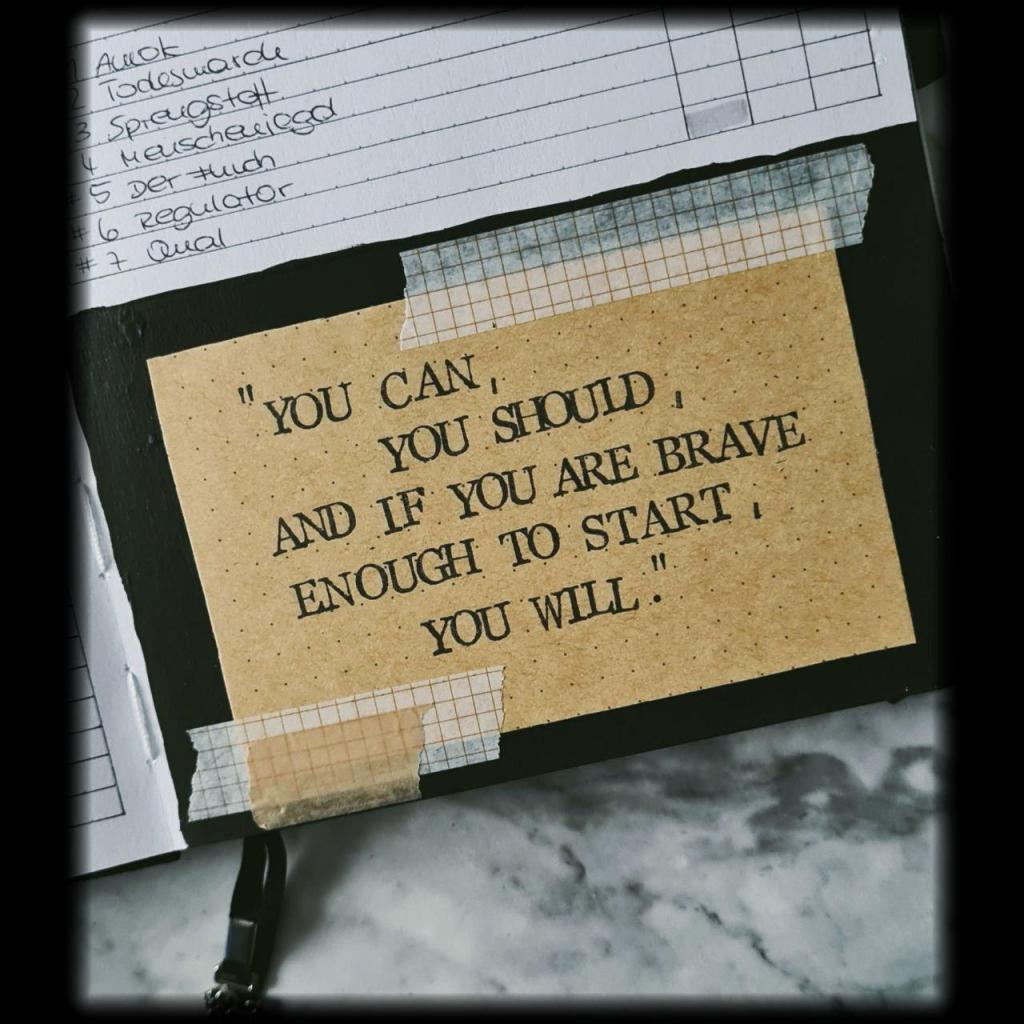 1 Amok
2 Todesmarch
3 Sprengstoff
4 Menschenjagd
# 5 Der Fluch
# 6 Regulator
# 7 Qual
"YOU CAN,
YOU SHOULD,
AND IF YOU ARE BRAVE
ENOUGH TO START,
YOU WILL."